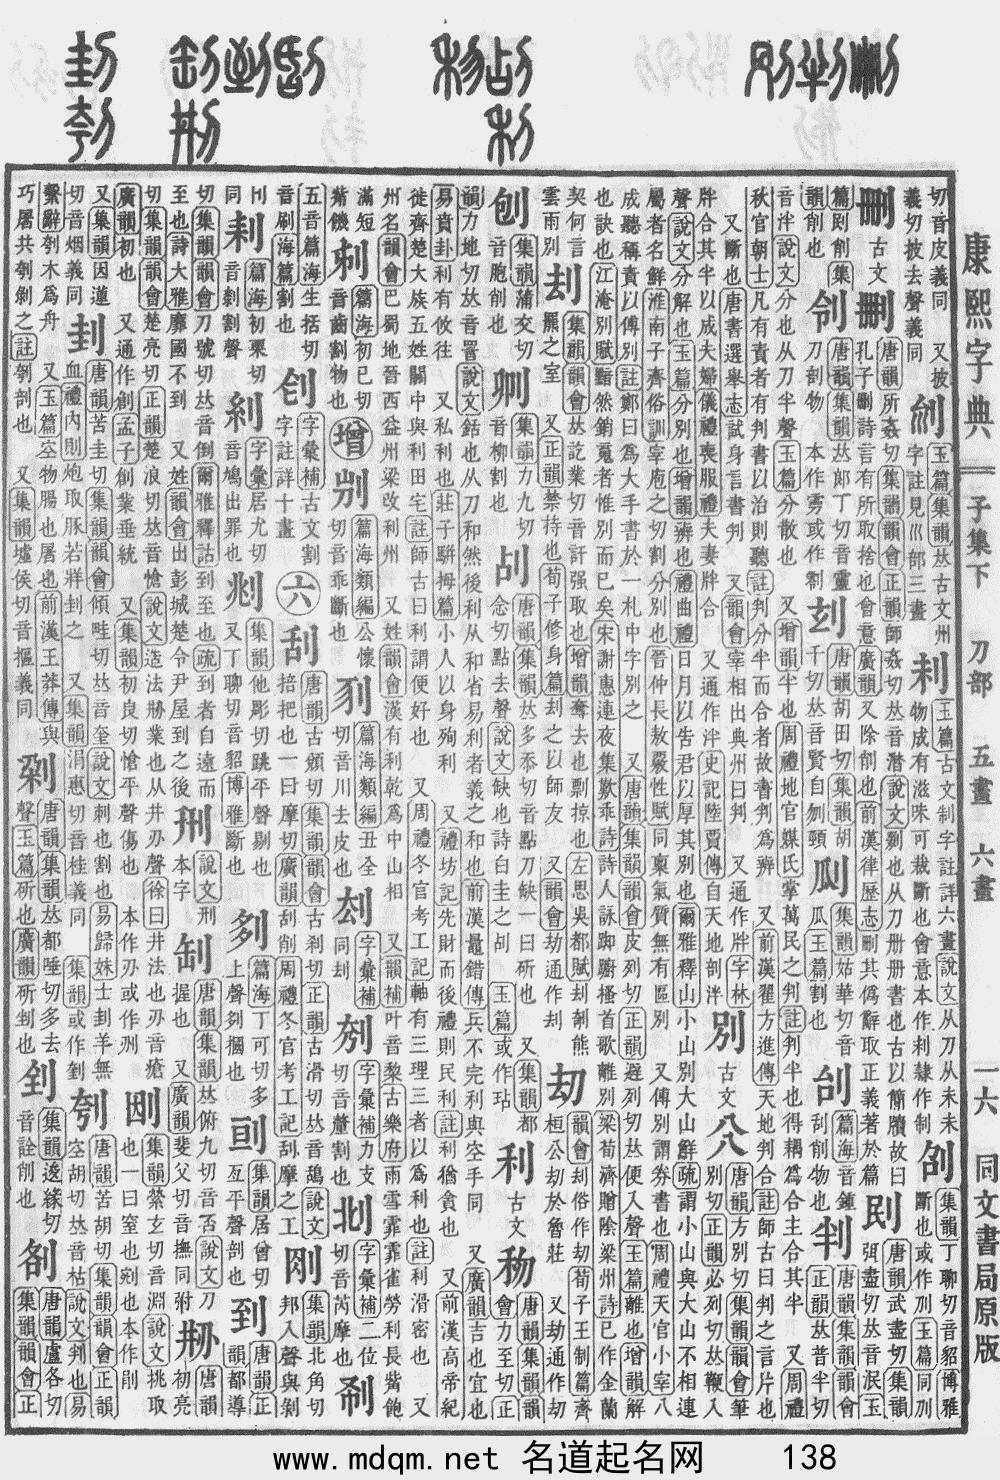 康熙字典 子集下 刀部 五畫 六畫 一六 同文書局原版
切音皮義同 又披義切披去聲義同 玉篇集韻𠀤古文州字註見巛部三畫 𥝢 玉篇古文制字註詳六畫說文从刀从未未物成有滋味可裁斷也會意本作𥝢隸作制 刟 集韻丁聊切音貂博雅斷也或作刉玉篇同刉
刪 古文 刪 唐韻所姦切集韻韻會正韻師姦切𠀤音潸說文剟也从刀冊冊書也古以簡牘故曰孔子刪詩言有所取捨也會意廣韻又除削也前漢律歷志刪其僞辭取正義著於篇 刡 唐韻武盡切集韻弭盡切𠀤音泯玉
篇刡削集韻削也 刢 唐韻集韻𠀤郎丁切音靈刀割物 唐韻胡田切集韻胡千切𠀤音賢自刎頸 㼌 集韻姑華切音瓜玉篇割也 刣 篇海音鍾刮削物也 判 唐韻集韻韻會正韻𠀤普半切
音泮說文分也从刀半聲玉篇分散也 又增韻半也周禮地官媒氏掌萬民之判註判半也得耦爲合主合其半 又周禮秋官朝士凡有責者有判書以治則聽註判分半而合者故書判爲辨 又前漢翟方進傳天地判合註師古曰判之言片也
又斷也唐書選舉志試身言書判 又韻會宰相出典州曰判 又通作牉字林牉合其半以成夫婦儀禮喪服禮夫妻牉合 又通作泮史記陸賈傳自天地剖泮 別 古文 𠔁 唐韻方別切集韻韻會筆別切正韻必列切𠀤鞭入
聲說文分解也玉篇分別也增韻辨也禮曲禮日月以告君以厚其別也爾雅釋山小山別大山鮮疏謂小山與大山不相連屬者名鮮淮南子齊俗訓宰庖之切割分別也晉仲長敖覈性賦同稟氣質無有區別 又傅別謂券書也周禮天官小宰八
成聽稱責以傅別註鄭曰爲大手書於一札中字別之 又唐韻集韻韻會皮列切正韻避列切𠀤便入聲玉篇離也增韻解也訣也江淹別賦黯然銷䰟者惟別而已矣宋謝惠連夜集歎乖詩詩人詠踟躕搔首歌離別梁荀濟贈陰梁州詩已作金蘭
契何言雲雨別 刦 集韻韻會𠀤訖業切音訐强取也增韻奪去也剽掠也左思吳都賦刦剞熊羆之室 又正韻禁持也荀子修身篇刦之以師友 又韻會劫通作刦 刧 韻會刦俗作刧荀子王制篇齊桓公刧於魯莊 又劫通作刧
刨 集韻蒲交切音胞削也 集韻力九切音柳割也 㓠 唐韻集韻𠀤多忝切音點刀缺一曰斫也 又集韻都念切點去聲說文缺也詩白圭之㓠玉篇或作玷 利 古文 𥝤 唐韻集韻韻會力至切正
韻力地切𠀤音詈說文銛也从刀和然後利从和省易利者義之和也前漢鼂錯傳兵不完利與空手同 又廣韻吉也宜也易賁卦利有攸往 又私利也莊子騈拇篇小人以身殉利 又禮坊記先財而後禮則民利註利猶貪也 又前漢高帝紀
徙齊楚大族五姓關中與利田宅註師古曰利謂便好也 又周禮冬官考工記軸有三理三者以爲利也註利滑密也 又州名韻會巴蜀地晉西益州梁改利州 又姓韻會漢有利乾爲中山相 又韻補叶音黎古樂府雨雪霏霏雀勞利長觜飽
滿短觜饑 篇海初已切音齒割物也 增 篇海類編公懷切音乖斷也 篇海類編丑全切音川去皮也 字彙補同刦 字彙補力支切音釐割也 字彙補二位切音芮摩也
五音篇海生括切音刷海篇割也 刨 字彙補古文割字註詳十畫 六 刮 唐韻古頒切集韻韻會古刹切正韻古滑切𠀤音鴰說文掊把也一曰摩切廣韻刮削周禮冬官考工記刮摩之工 集韻北角切邦入聲與剝
同 篇海初栗切音剗割聲 字彙居尤切音鳩出罪也 集韻他彫切跳平聲剔也 又丁聊切音貂博雅斷也 篇海丁可切多上聲刴摑也 集韻居曾切亙平聲剖也 到 唐韻正韻都導
切集韻刀號切𠀤音倒爾雅釋詁到至也疏到者自遠而至也詩大雅靡國不到 又姓韻會出彭城楚令尹屋到之後 說文刑本字 唐韻集韻𠀤俯九切音否說文刀握也 又廣韻斐父切音撫同弣 刱 唐韻初亮
切集韻韻會楚亮切正韻楚浪切𠀤音愴說文造法刱業也从井刅聲徐曰井法也刅音瘡廣韻初也 又通作創孟子創業垂統 又集韻初良切愴平聲傷也 本作刅或作刏 集韻縈玄切音淵說文挑取也一曰窒也剜也本作削
又集韻因蓮切音烟義同 刲 唐韻苦圭切集韻韻會傾畦切𠀤音奎說文刺也割也易歸妹士刲羊無血禮內則炮取豚若牂刲之 又集韻涓惠切音桂義同 集韻或作㓶 刳 唐韻苦胡切集韻韻會正韻空胡切𠀤音枯說文判也易
繫辭刳木爲舟 又玉篇空物腸也屠也前漢王莽傳與巧屠共刳剝之註刳剖也 又集韻墟侯切音摳義同 剁 唐韻集韻𠀤都唾切多去聲玉篇斫也廣韻斫剉也 集韻逡緣切音詮削也 㓢 唐韻盧各切集韻韻會正
www.mdqm.net 名道起名网 138